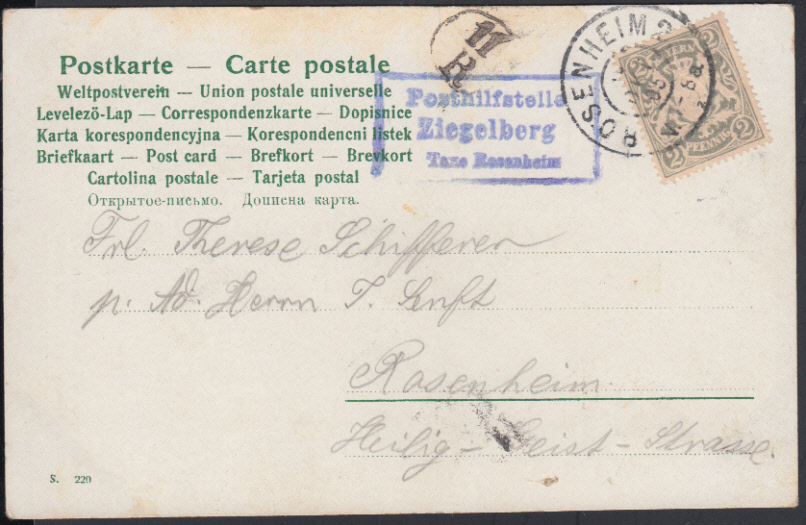 Postkarte — Carte postale
Weltpostverein — Union postale universelle
Levelezö-Lap — Correspondenzkarte — Dopisnice
Karta korespondencyjna — Korespondencni listek
Briefkaart — Post card — Brefkort — Brevkort
Cartolina postale — Tarjeta postal
Открытое-письмо. Дописна карта.
11
R
Posthilfstelle
Ziegelberg
Taxe Rosenheim
ROSENHEIM 2
BAYERN
2 PFENNIG 2
Frl. Therese Schifferer
p. Ad. Herrn J. Senft
Rosenheim.
Heilig-Geist-Strasse.
S. 220